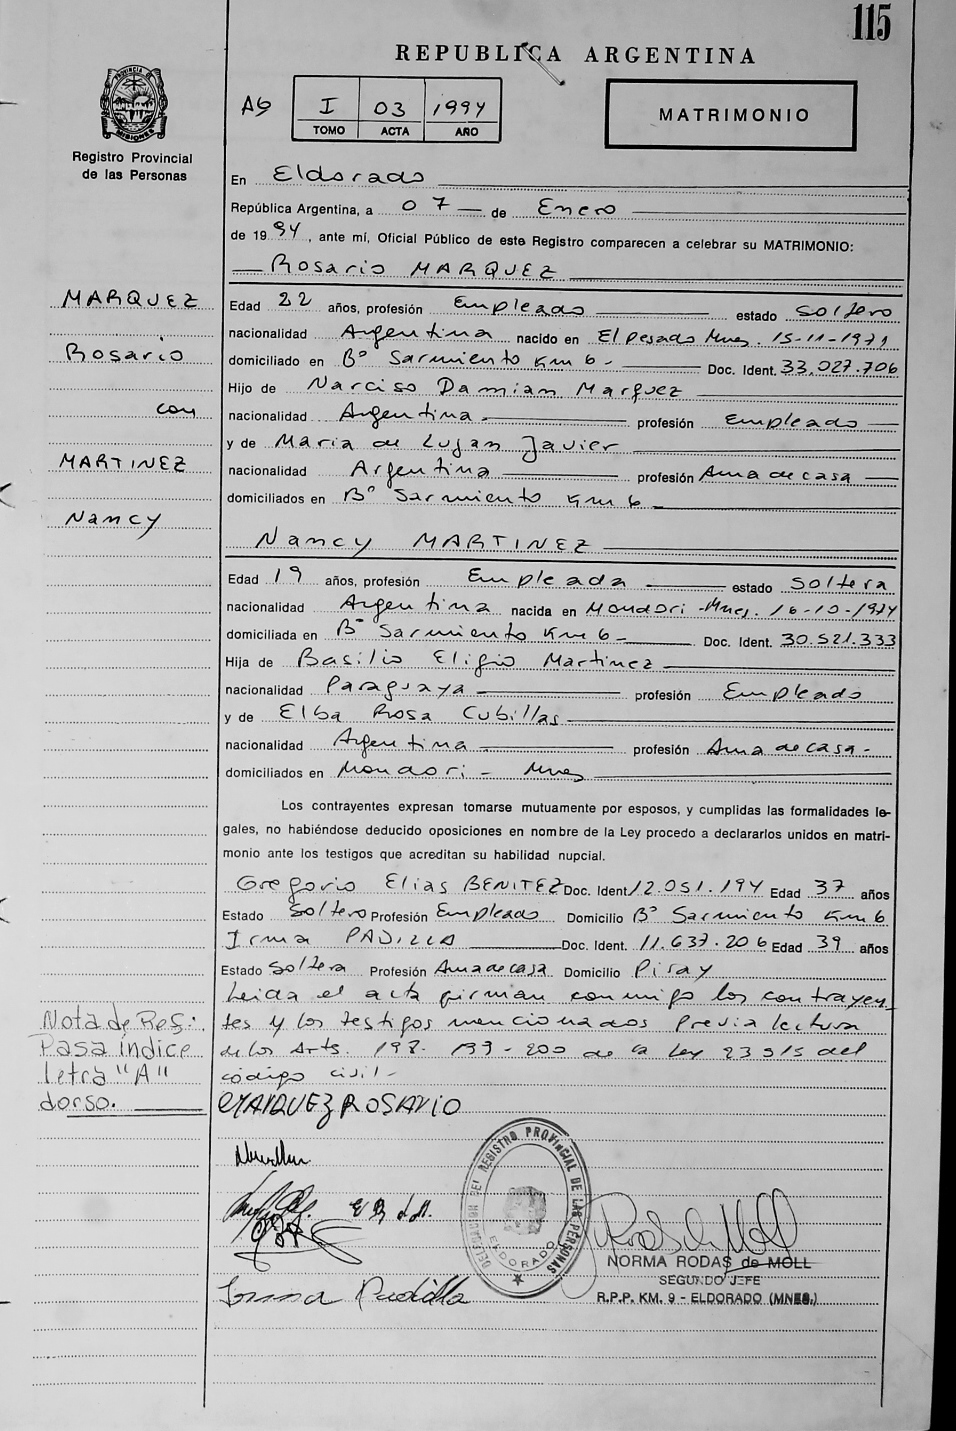 115
REPUBLICA ARGENTINA
PROVINCIA DE MISIONES
Registro Provincial
de las Personas
I 03 1994
TOMO ACTA AÑO
MATRIMONIO
En Eldorado
República Argentina, a 07 de Enero
de 1994, ante mí, Oficial Público de este Registro comparecen a celebrar su MATRIMONIO:
Rosario MARQUEZ
MARQUEZ
Rosario
con
MARTINEZ
Nancy
Edad 22 años, profesión Empleado estado soltero
nacionalidad Argentina nacido en El Pesado Mnes. 15-11-1971
domiciliado en Bº Sarmiento Km 6 - Doc. Ident. 33.027.706
Hijo de Narciso Damian Marquez
nacionalidad Argentina profesión Empleado
y de Maria de Lujan Javier
nacionalidad Argentina profesión Ama de casa
domiciliados en Bº Sarmiento Km 6
Nancy MARTINEZ
Edad 19 años, profesión Empleada estado soltera
nacionalidad Argentina nacida en Mondori - Mnes. 16-10-1974
domiciliada en Bº Sarmiento Km 6 - Doc. Ident. 30.521.333
Hija de Basilio Eligio Martinez
nacionalidad Paraguaya profesión Empleado
y de Elba Rosa Cubillas
nacionalidad Argentina profesión Ama de casa -
domiciliados en Mondori - Mnes
Los contrayentes expresan tomarse mutuamente por esposos, y cumplidas las formalidades le-
gales, no habiéndose deducido oposiciones en nombre de la Ley procedo a declararlos unidos en matri-
monio ante los testigos que acreditan su habilidad nupcial.
Gregorio Elias BENITEZ Doc. Ident. 12.051.194 Edad 37 años
Estado Soltero Profesión Empleado Domicilio Bº Sarmiento Km 6
Irma PADILLA Doc. Ident. 11.637.206 Edad 39 años
Estado Soltera Profesión Ama de casa Domicilio Piray
Leida el acta firman conmigo los contrayen
tes y los testigos mencionados previa lectura
de los Arts. 198 - 199 - 200 de la Ley 23515 del
código civil -
Nota de Reg:
Pasa índice
letra "A"
dorso.
MARQUEZ ROSARIO
DELEGACION DEL REGISTRO PROVINCIAL DE LAS PERSONAS
ELDORADO
Irma Padilla
NORMA RODAS de MOLL
SEGUNDO JEFE
R.P.P. KM. 9 - ELDORADO (MNES.)